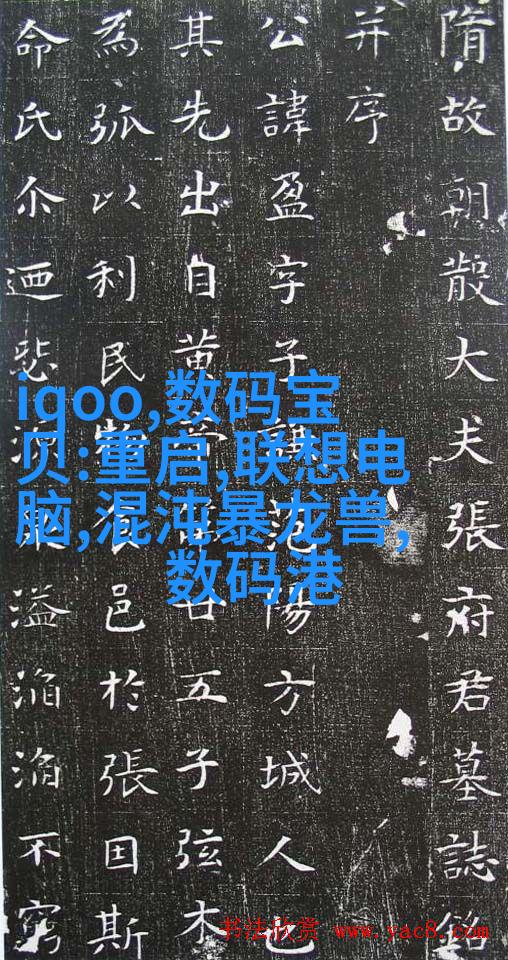 隋故朝散大夫張府君墓誌銘
并序
公諱盈字子范陽方城人也
其先出自黃廿五子弦木
為弧以利民邑於張因斯
命氏尒迺悲溢滔滔不窮
iqoo,数码宝
贝:重启,联想电
脑,混沌暴龙兽,
数码港
书法欣赏 www.yac8.com